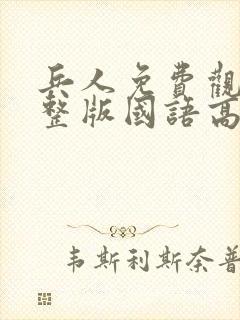 兵人免費觀
整版國語高
韦斯利斯奈普